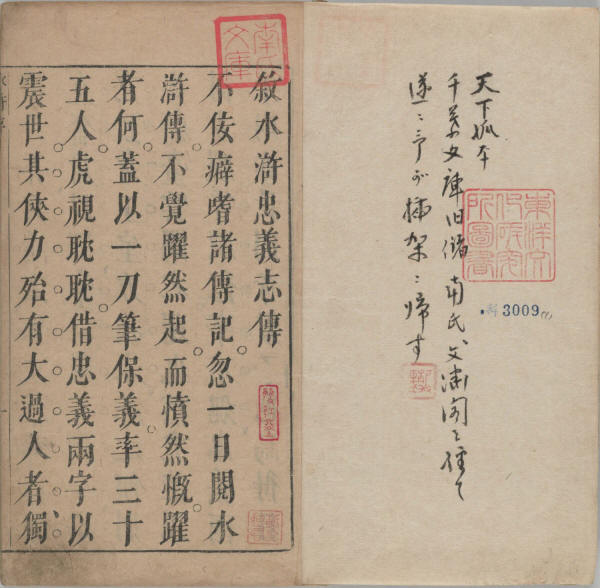 天下孤本
千葉文庫旧儲南氏文淵閣を経て
遂ニ予が插架ニ帰す
東洋文
化研究
所圖書
3009
南氏
文庫
敘水滸忠義志傳
不佞癖嗜諸傳記。忽一日閱水
滸傳。不覺躍然起。而憤然慨。躍
者何。蓋以一刀筆保義。率三十
五人。虎視耽耽。借忠義兩字以
震世其俠力殆有大過人者獨